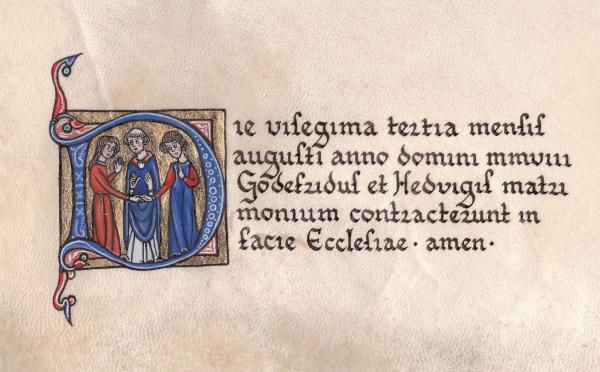 Die viſegima tertia menſiſ
auguſti anno domini mmviii
Godefriduſ et Hedvigiſ matri
monium contracterunt in
facie Eccleſiae · amen ·